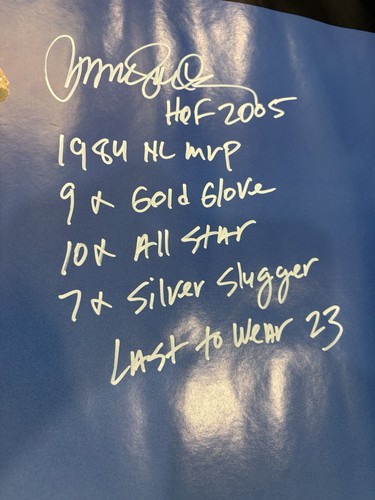 Ryne Sandberg
HOF 2005
1984 NL MVP
9 x Gold Glove
10x All Star
7 x Silver Slugger
Last to Wear 23